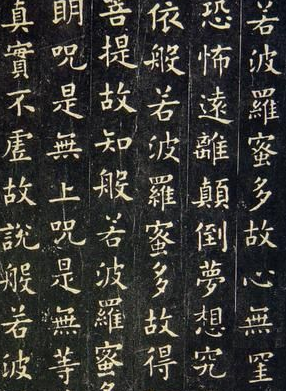 若波羅蜜多故心無罣
恐怖遠離顛倒夢想究
依般若波羅蜜多故得
菩提故知般若波羅蜜多
明呪是無上呪是無等
真實不虛故說般若波